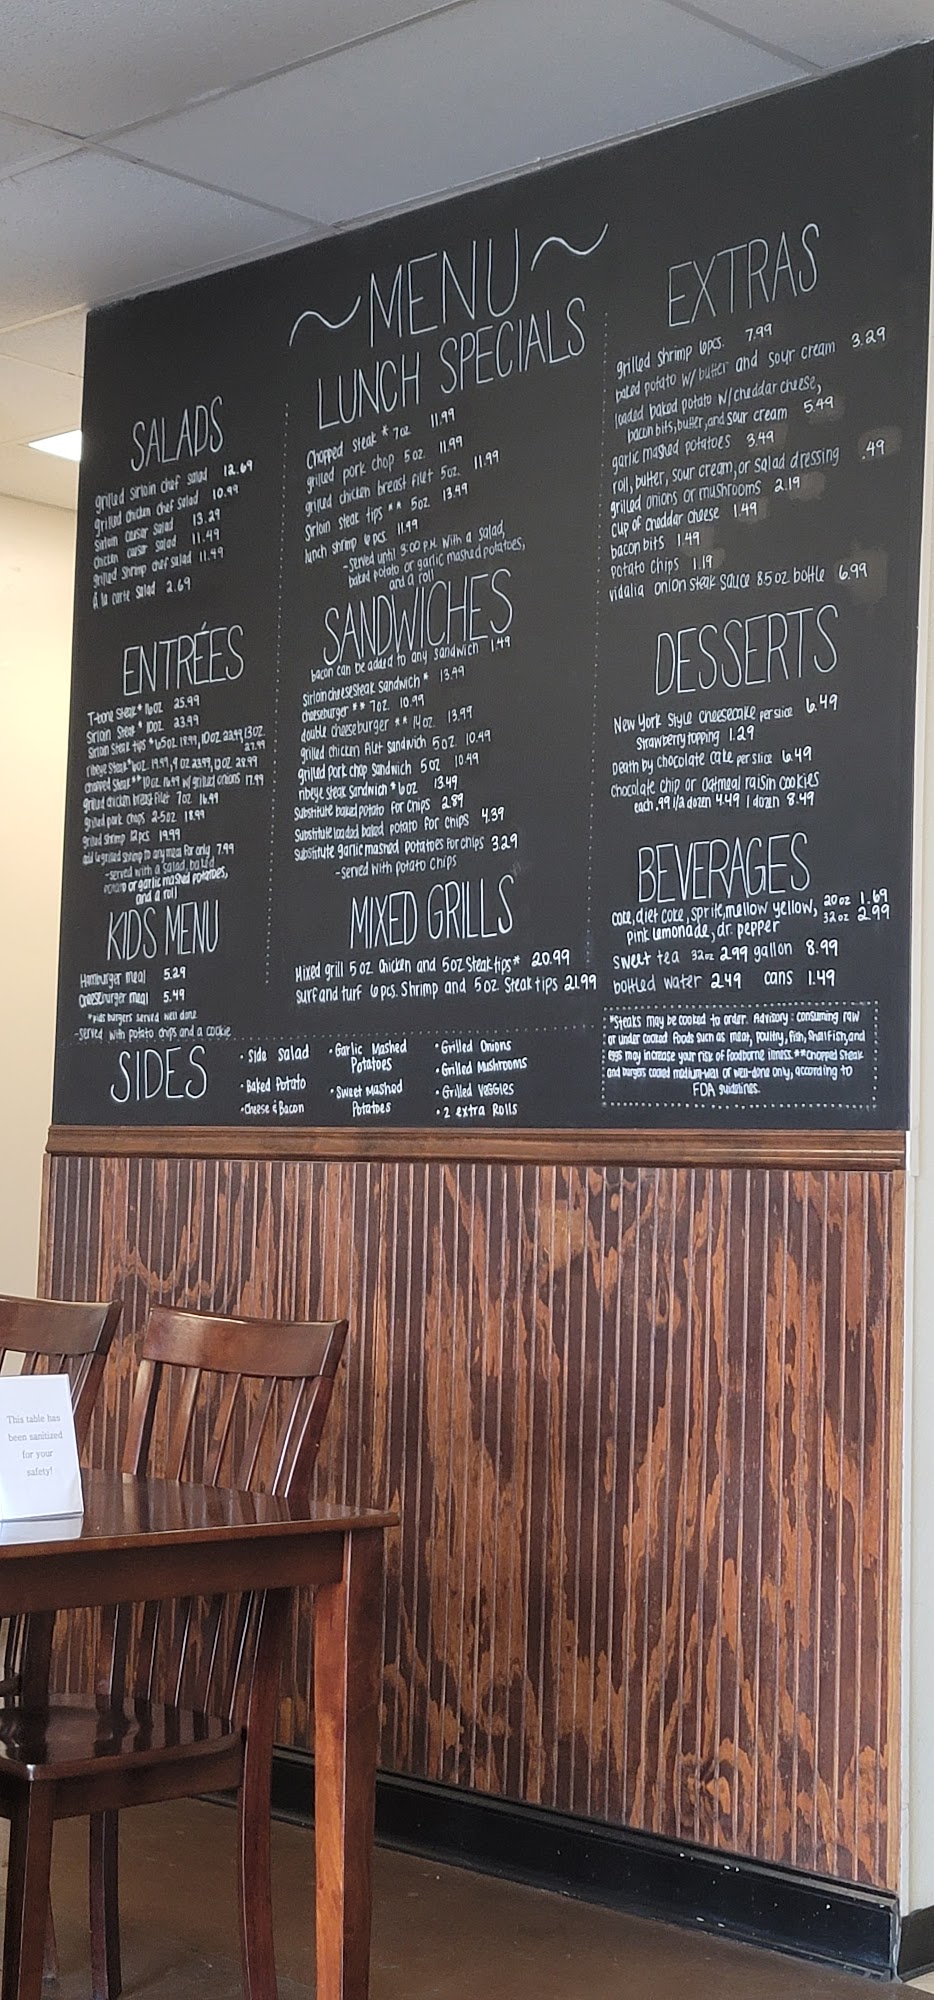 ~MENU~
SALADS
grilled sirloin chef salad 12.69
grilled chicken chef salad 10.99
sirloin caesar salad 13.29
chicken caesar salad 11.49
grilled shrimp chef salad 11.49
À la carte salad 2.69
ENTRÉES
T-bone steak* 16oz 25.99
Sirloin Steak* 10oz 23.99
Sirloin Steak tips *6.5oz 18.99, 10oz 22.99, 13oz
27.99
ribeye steak* 6oz 19.99, 9oz 23.99, 12oz 28.99
chopped steak** 10oz 16.99 w/ grilled onions 17.99
grilled chicken breast filet 7oz 16.99
grilled pork chops 2-5oz 18.99
grilled shrimp 12pcs 19.99
add 6 grilled shrimp to any meal for only 7.99
-served with a salad, baked
potato or garlic mashed potatoes,
and a roll
KIDS MENU
Hamburger meal 5.29
Cheeseburger meal 5.49
*kids burgers served well done
-served with potato chips and a cookie
LUNCH SPECIALS
Chopped steak * 7oz 11.99
grilled pork chop 5oz. 11.99
grilled chicken breast filet 5oz. 11.99
Sirloin steak tips ** 5oz. 13.49
lunch shrimp 6pcs. 11.99
-Served until 3:00 P.M. with a salad,
baked potato or garlic mashed potatoes,
and a roll
SANDWICHES
bacon can be added to any sandwich 1.49
sirloin cheesesteak sandwich* 13.49
cheeseburger ** 7oz 10.99
double cheeseburger ** 14oz 13.99
grilled chicken filet sandwich 5oz 10.49
grilled pork chop sandwich 5oz 10.49
ribeye steak sandwich* 6oz 13.49
Substitute baked potato for chips 2.89
Substitute loaded baked potato for chips 4.39
Substitute garlic mashed potatoes for chips 3.29
-served with potato chips
MIXED GRILLS
Mixed grill 5oz Chicken and 5oz Steak tips* 20.99
surf and turf 6pcs. Shrimp and 5oz Steak tips 21.99
EXTRAS
grilled shrimp 6pcs. 7.99
baked potato w/ butter and sour cream 3.29
loaded baked potato w/ cheddar cheese,
bacon bits, butter, and sour cream 5.49
garlic mashed potatoes 3.49
roll, butter, sour cream, or salad dressing .49
grilled onions or mushrooms 2.19
cup of cheddar cheese 1.49
bacon bits 1.49
potato chips 1.19
vidalia onion steak sauce 8.5oz bottle 6.99
DESSERTS
New York Style cheesecake per slice 6.49
Strawberry topping 1.29
Death by chocolate cake per slice 6.49
chocolate chip or oatmeal raisin cookies
each .99 1/2 dozen 4.49 1 dozen 8.49
BEVERAGES
coke, diet coke, sprite, mellow yellow, 20oz 1.69
pink lemonade, dr. pepper 32oz 2.99
sweet tea 32oz 2.99 gallon 8.99
bottled water 2.49 cans 1.49
SIDES
• Side Salad
• Baked Potato
• Cheese & Bacon
• Garlic Mashed
Potatoes
• Sweet Mashed
Potatoes
• Grilled Onions
• Grilled Mushrooms
• Grilled Veggies
• 2 extra Rolls
*Steaks may be cooked to order. Advisory: consuming raw
or under cooked foods such as meat, poultry, fish, shellfish, and
eggs may increase your risk of foodborne illness. **Chopped Steak
and burgers cooked medium-well or well-done only, according to
FDA guidelines.
This table has
been sanitized
for your
safety!